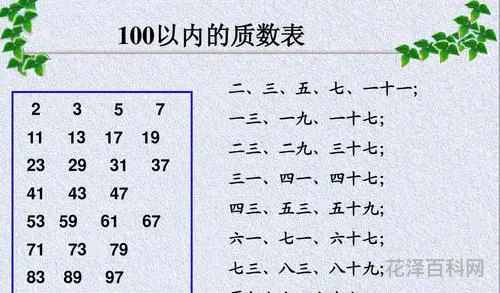 100以内的质数表
2 3 5 7
11 13 17 19
23 29 31 37
41 43 47
53 59 61 67
71 73 79
83 89 97
二、三、五、七、一十一;
一三、一九、一十七;
二三、二九、三十七;
三一、四一、四十七;
四三、五三、五十九;
六一、七一、六十七;
七三、八三、八十九;
花泽百科网